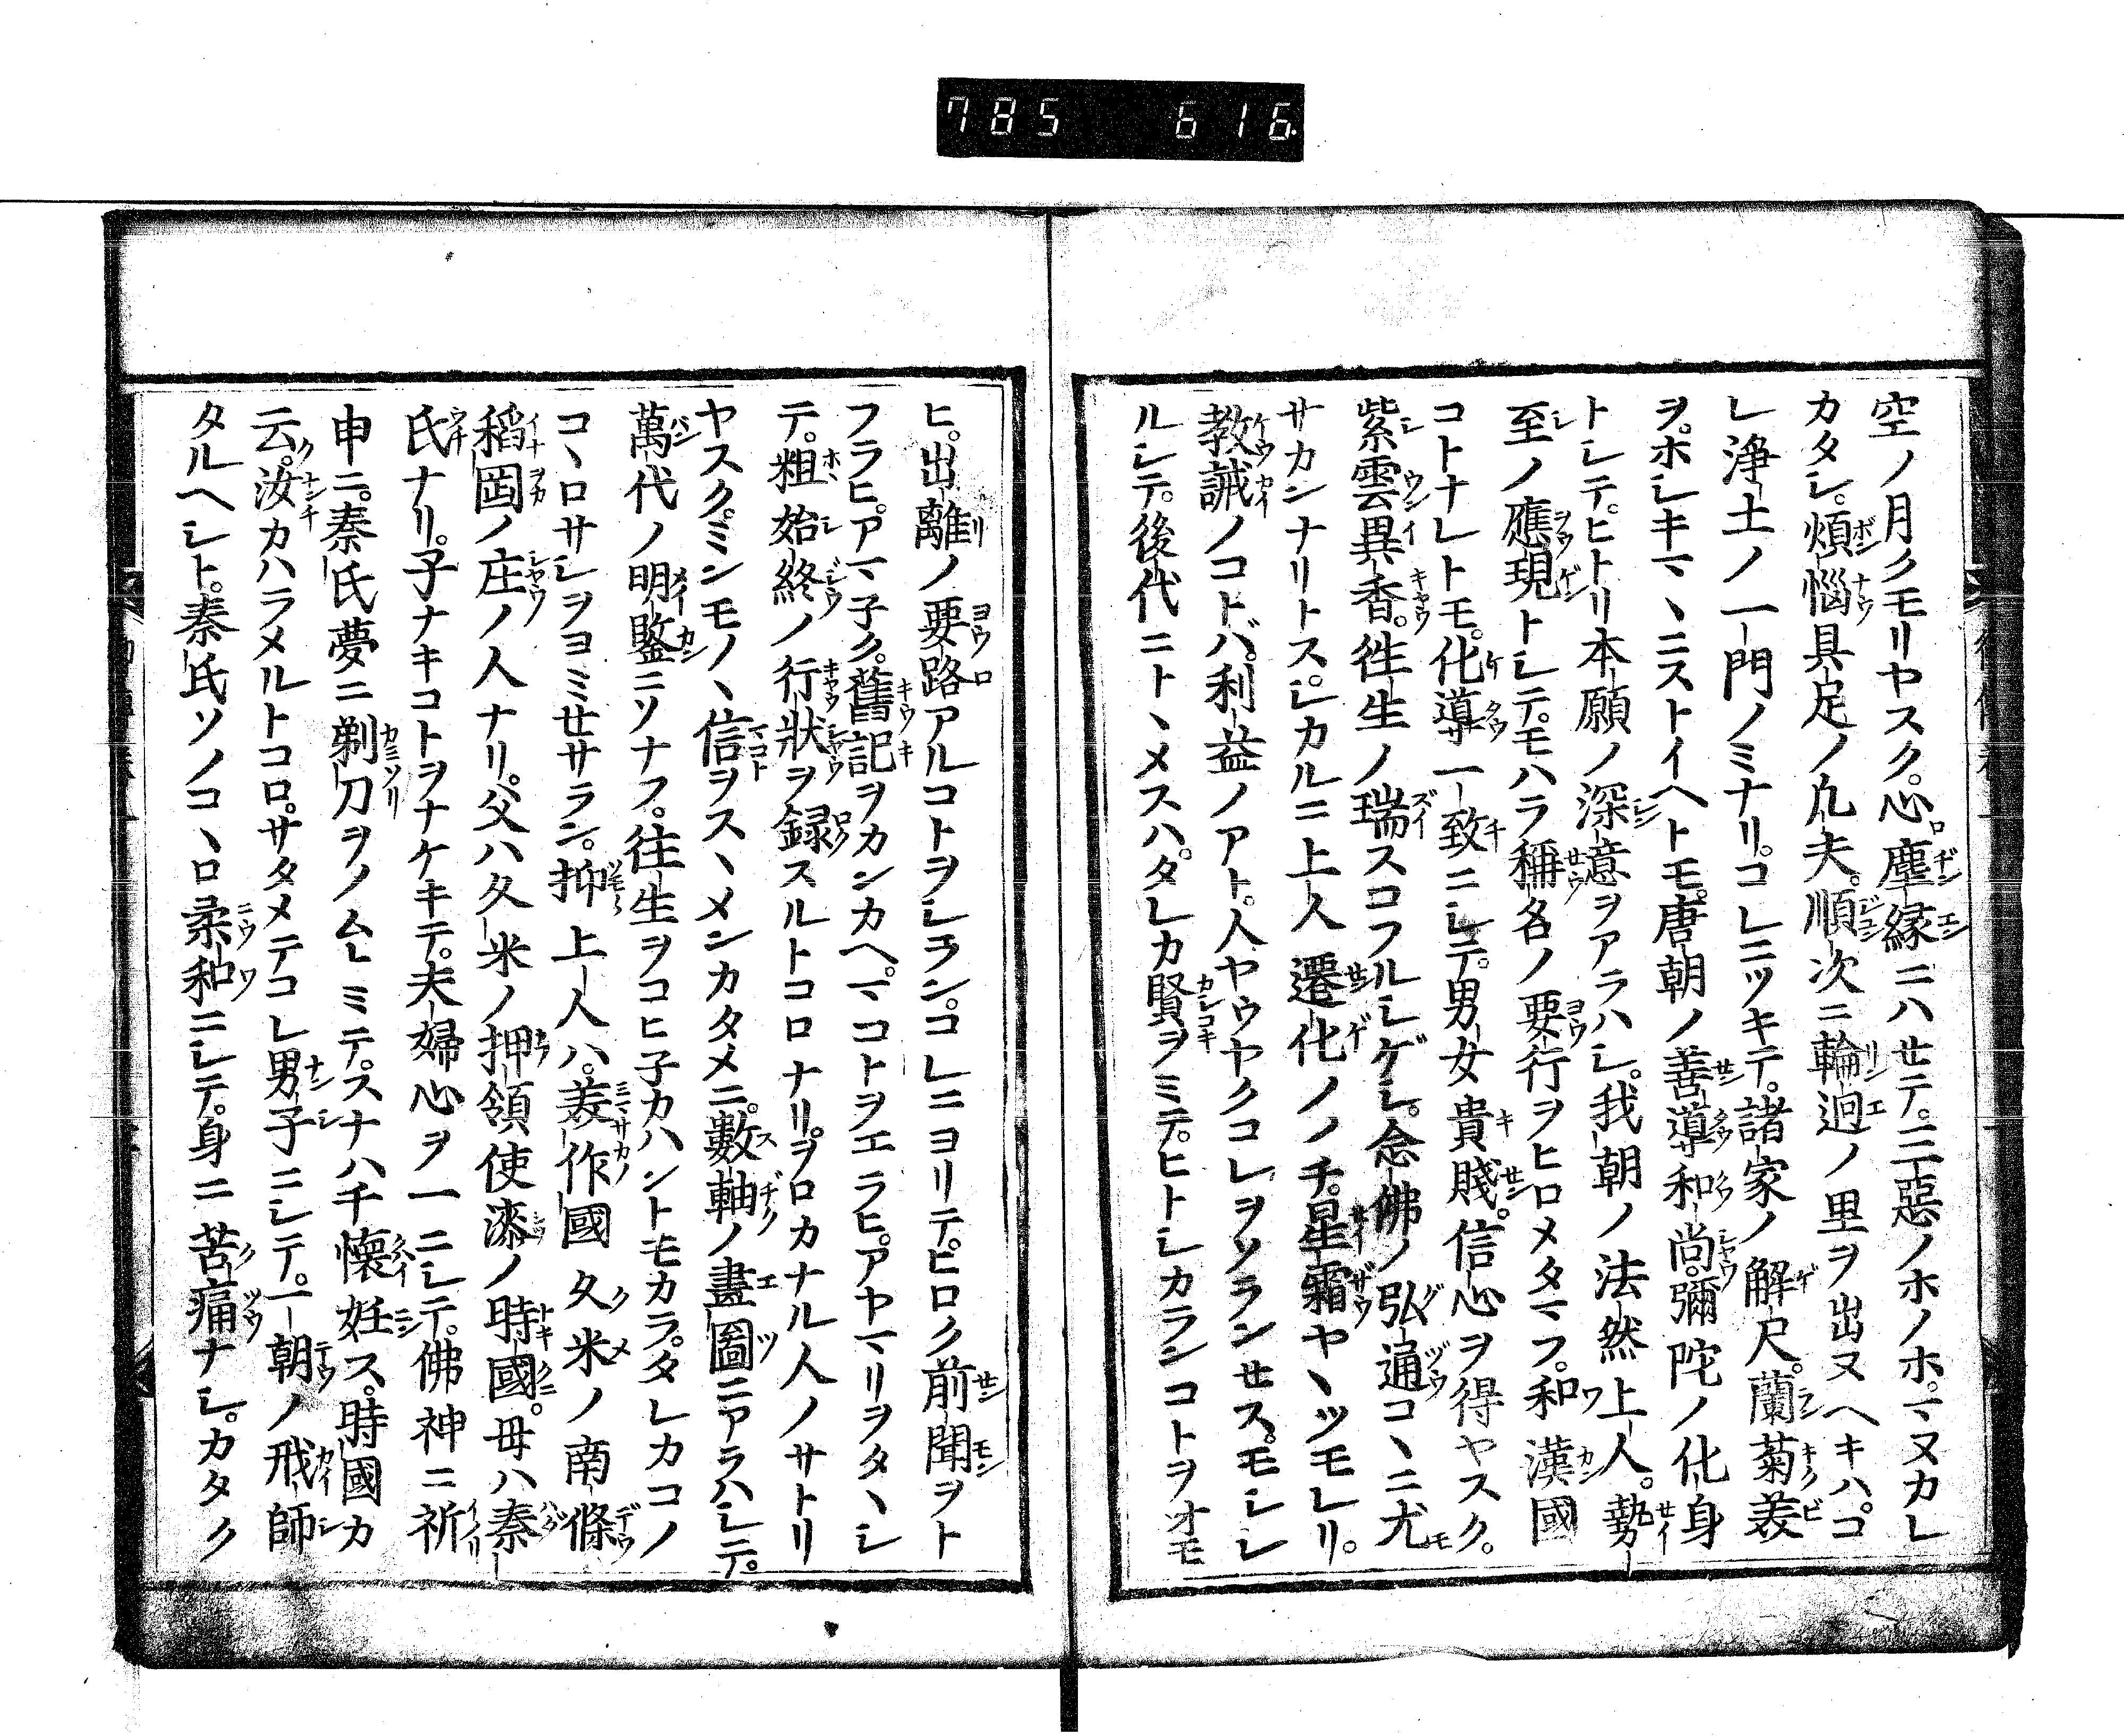 785 616
空ノ月クモリヤスク。心塵縁ニハセテ。三惡ノホノホ。マヌカレ
カタシ。煩惱具足ノ凡夫。順次ニ輪迴ノ里ヲ出ヌヘキハ。コ
レ浄土ノ一門ノミナリ。コレニツキテ。諸家ノ解尺。蘭菊美
ヲ。ホシキマヽニストイヘトモ。唐朝ノ善導和尚。彌陀ノ化身
トシテ。ヒトリ本願ノ深意ヲアラハシ。我朝ノ法然上人。勢
至ノ應現トシテ。モハラ稱名ノ要行ヲヒロメタマフ。和漢國
コトナレトモ。化導一致ニシテ。男女貴賤。信心ヲ得ヤスク。
紫雲異香。徃生ノ瑞スコフルシゲシ。念佛ノ弘通コヽニ尤
サカンナリトス。シカルニ上人遷化ノノチ。星霜ヤヽツモレリ。
教誡ノコトバ。利益ノアト。人ヤウヤクコレヲソランセス。モシシ
ルシテ。後代ニトヽメスハ。タレカ賢ヲミテ。ヒトシカランコトヲオモ
ヒ。出離ノ要路アルコトヲシラン。コレニヨリテ。ヒロク前聞ヲト
フラヒ。アマ子ク。舊記ヲカンカヘ。マコトヲエラヒ。アヤマリヲタヽシ
テ。粗始終ノ行狀ヲ録スルトコロナリ。ヲロカナル人ノサトリ
ヤスク。ミンモノヽ信ヲスヽメンカタメニ。數軸ノ畫圖ニアラハシテ。
萬代ノ明鑒ニソナフ。往生ヲコヒ子カハントモカラ。タレカコノ
コヽロサシヲヨミセサラン。抑上人ハ。美作國久米ノ南條
稲岡ノ庄ノ人ナリ。父ハ久米ノ押領使漆ノ時國。母ハ秦
氏ナリ。子ナキコトヲナケキテ。夫婦心ヲ一ニシテ。佛神ニ祈
申ニ。秦氏夢ニ剃刀ヲノムトミテ。スナハチ懷妊ス。時國カ
云。汝カハラメルトコロ。サタメテコレ男子ニシテ。一朝ノ戒師
タルヘシト。秦氏ソノコヽロ柔和ニシテ。身ニ苦痛ナシ。カタク